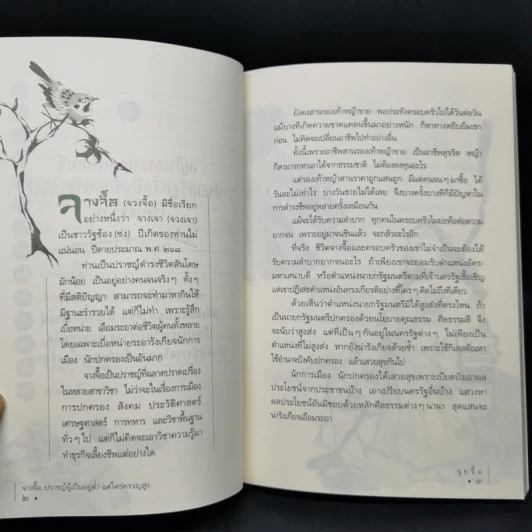 จางจื๊อ (จวงจื๊อ) มีชื่อเรียก
อย่างหนึ่งว่า จางเจา (จวงเจา)
เป็นชาวรัฐซ้อง (ซ่ง) ปีเกิดของท่านไม่
แน่นอน ปีตายประมาณ พ.ศ. ๒๖๘
ท่านเป็นปราชญ์ดำรงชีวิตสันโดษ
มักน้อย เป็นอยู่อย่างคนจนจริงๆ ทั้งๆ
ที่มีสติปัญญา สามารถจะทำมาหากินให้
มีฐานะร่ำรวยได้ แต่ก็ไม่ทำ เพราะรู้สึก
เบื่อหน่าย เอือมระอาต่อชีวิตผู้คนทั้งหลาย
โดยเฉพาะเบื่อหน่ายระอารังเกียจนักการ
เมือง นักปกครองเป็นอันมาก
จางจื๊อเป็นปราชญ์ที่ฉลาดปราดเปรื่อง
ในหลายสาขาวิชา ไม่ว่าจะในเรื่องการเมือง
การปกครอง สังคม ประวัติศาสตร์
เศรษฐศาสตร์ การทหาร และวิชาพื้นฐาน
ทั่วๆ ไป แต่ก็ไม่คิดจะเอาวิชาความรู้มา
ทำธุรกิจเลี้ยงชีพแต่อย่างใด
จางจื๊อ ปราชญ์ผู้เป็นอยู่ต่ำ แต่ใคร่ครวญสูง
๒ •
ยังคงสานรองเท้าหญ้าขาย พอประทังครอบครัวไปได้วันต่อวัน
แม้บางทีเกิดความขาดแคลนขึ้นมาอย่างหนัก ก็หาทางหยิบยืมเขา
ก่อน ไม่คิดจะเปลี่ยนอาชีพไปทำอย่างอื่น
ทั้งนี้เพราะอาชีพสานรองเท้าหญ้าขาย เป็นอาชีพสุจริต หญ้า
ก็สามารถหาเอาได้จากธรรมชาติ ไม่ต้องลงทุนอะไร
แต่รองเท้าหญ้าสานราคาถูกแสนถูก มีแต่คนจนๆ มาซื้อ ได้
วันละไม่เท่าไร บางวันขายไม่ได้เลย จึงบางครั้งบางทีก็มีปัญหาใน
การดำรงชีพอยู่หลายครั้งเหมือนกัน
แม้จะได้รับความลำบาก ทุกคนในครอบครัวไม่ย่อท้อต่อความ
ยากจน เพราะอยู่มาจนชินแล้ว จะทุกข์อะไรกันอีก
ที่จริง ชีวิตจางจื๊อและครอบครัวของเขาไม่จำเป็นจะต้องได้
รับความลำบากยากจนอะไร ถ้าเพียงเขาจะยอมรับตำแหน่งอัคร-
มหาเสนาบดี หรือตำแหน่งนายกรัฐมนตรีตามที่เจ้านครรัฐเชื้อเชิญ
แต่เขาปฏิเสธตำแหน่งอันทรงเกียรติอย่างที่ใครๆ คิดไม่ถึงทีเดียว
ด้วยเห็นว่าตำแหน่งนายกรัฐมนตรีมิได้สูงส่งที่ตรงไหน ถ้า
เป็นนายกรัฐมนตรีปกครองด้วยนโยบายคุณธรรม ศีลธรรมสิ จึง
จะนับว่าสูงส่ง แต่ที่เป็นๆ กันอยู่ในนครรัฐต่างๆ ไม่เพียงเป็น
ตำแหน่งที่ไม่สูงส่ง หากยังน่ารังเกียจด้วยซ้ำ เพราะใช้กิเลสตัณหา
ใช้อำนาจบังคับปกครอง แล้วเสวยสุขกันไป
นักการเมือง นักปกครองได้เสวยสุขเพราะเบียดบังเอาผล
ประโยชน์จากประชาชนบ้าง เอาเปรียบนครรัฐอื่นบ้าง แสวงหา
ผลประโยชน์อันมิชอบด้วยหลักศีลธรรมต่างๆ นานา สุดแสนจะ
น่ารังเกียจเอือมระอา
• ๓